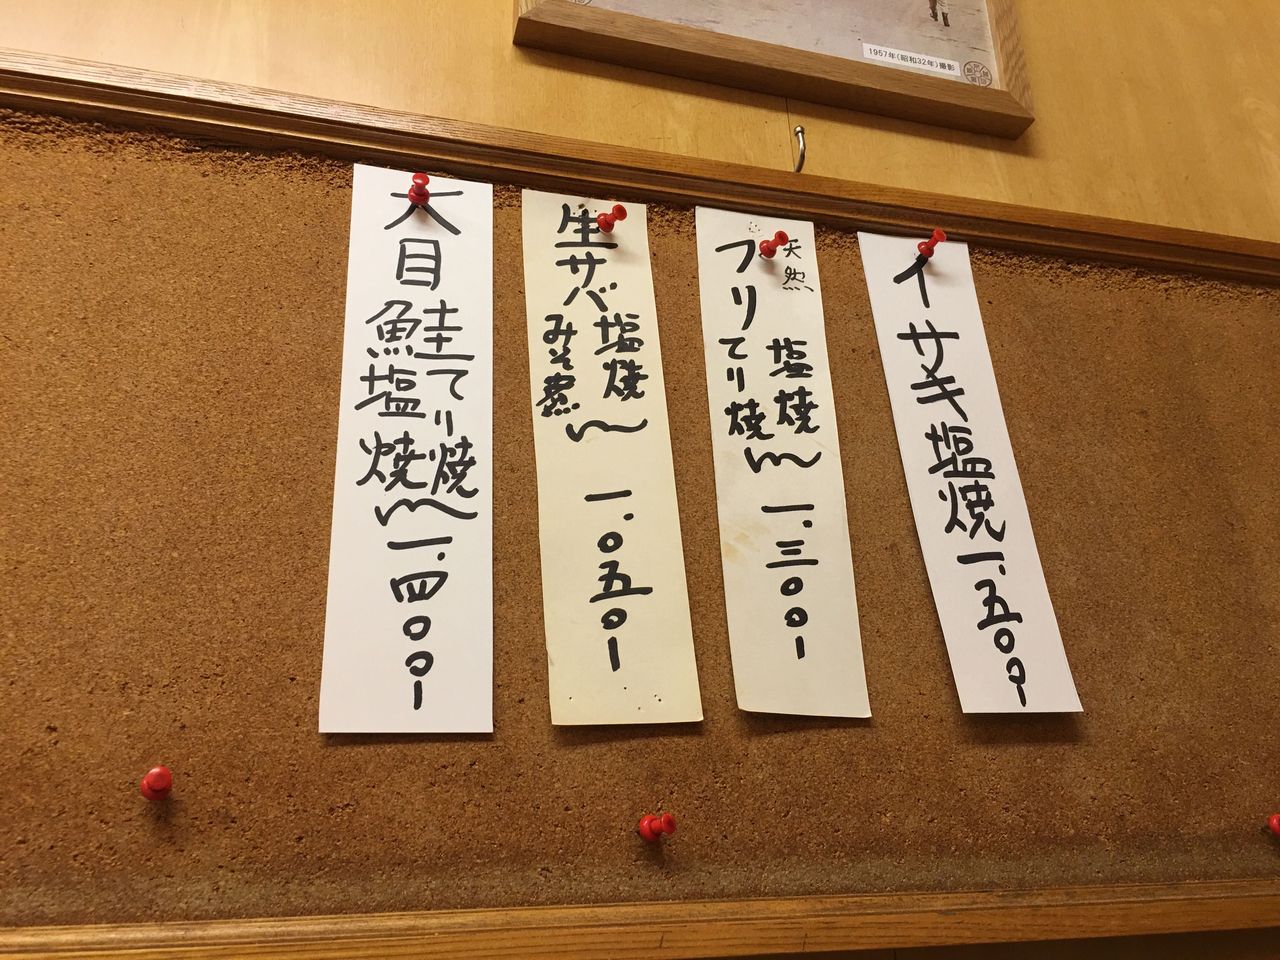 1957年(昭和32年)撮影
イサキ塩焼 一.五〇〇ー
天然
ブリ 塩焼
てり焼
一.三〇〇ー
生サバ 塩焼
みそ煮
一.〇五〇ー
大目鮭 てり焼
塩焼
一.四〇〇ー